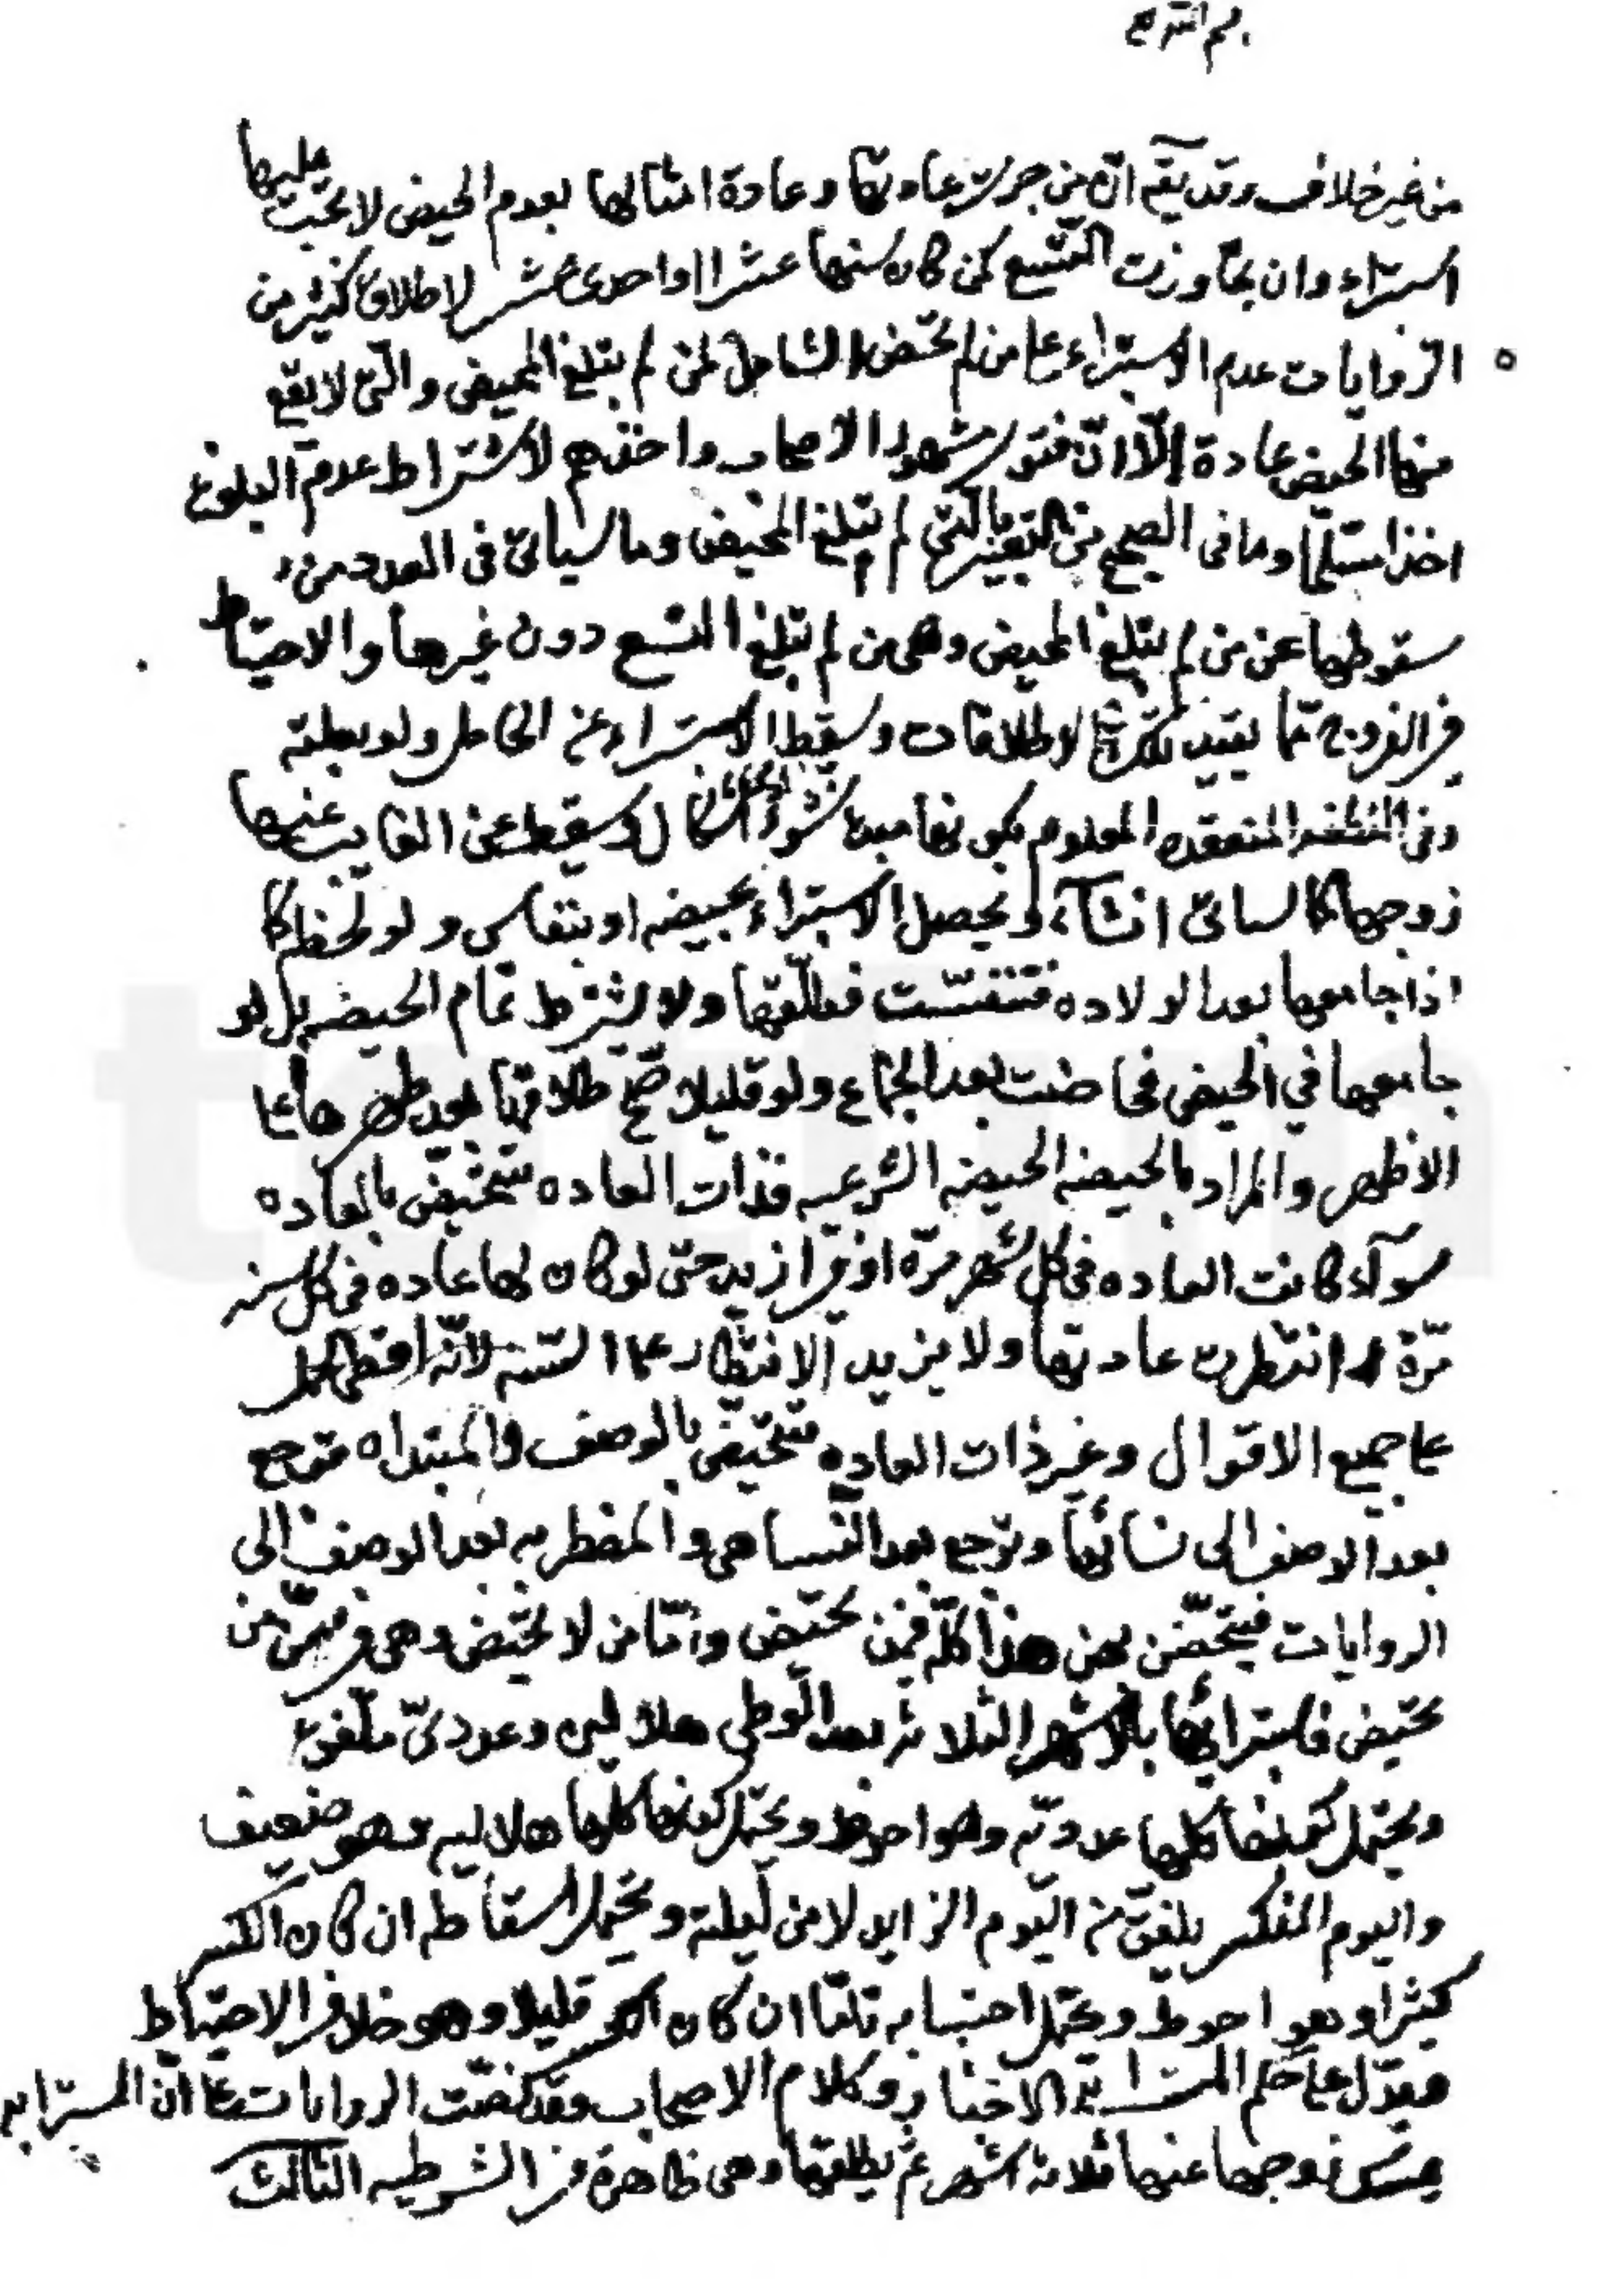 من غير خلاف وقد يقه ان من جرت عادتها وعادة امثالها بعدم الحيض لا يجب عليها
استبراء وان تجاوزت التسع كمن كان سنها عشرا او احدى عشر لاطلاق كثير من
الروايات عدم الاستبراء على من لم تحض الشامل لمن لم يبلغ المحيض والتي لا يقع
منها الحيض عادة إلّا انّ فتوى مشهور الاصحاب واخذهم لاشتراط عدم البلوغ
اخذا مسلما وما في الصحيح من التعبير بالتي لم تبلغ المحيض وما سيأتي في العدد من
سقوطها عن من لم يبلغ المحيض وهي من لم تبلغ التسع دون غيرها والاحتياط
في الفروج مما يقيد تلك الاطلاقات ويسقط الاستبراء عن الحامل ولو بعلقه
وفي النطفه المنعقده المعلوم كونها مبدء نشوء انسان اشكال ويسقط عن الغايب عنها
زوجها كما سياتي انشآء الله ويحصل الاستبراء بحيضه او بنفاس ولو لحظه كما
اذا جامعها بعد الولاده فتنفست فطلّقها ولا يشترط تمام الحيضه بل لو
جامعها في الحيض فحاضت بعد الجماع ولو قليلا صح طلاقها بعد طهرها على
الاظهر والمراد بالحيضه الحيضه الشرعيه فذات العاده تتحيض بالعاده
سوآء كانت العاده في كل شهر مرّة او في ازيد حتى لو كان لها عاده في كل سنه
مرّة انتظرت عادتها ولا يزيد الانتظار على السنه لانّه اقصى الحمل
على جميع الاقوال وغير ذات العاده تتحيّض بالوصف والمبتداه ترجع
بعد الوصف الى نسائها وترجع بعد النسا هي والمضطربه بعد الوصف الى
الروايات فيتحيّضن بهن هذا كلّه فيمن تحيض وامّا من لا تحيض وهي في سنّ من
تحيض فاستبرائها بالاشهر الثلاثه بعد الوطي هلاليين وعدديّ ملفق
ويحتمل كونها كلها عدديّه وهو احوط ويحتمل كونها كلها هلاليه وهو ضعيف
واليوم المنكسر يلفّق من اليوم الزايد لا من ليلته ويحتمل اسقاطه ان كان الكسر
كثيرا وهو احوط ويحتمل احتسابه تامّا ان كان الكسر قليلا وهو خلاف الاحتياط
ويدّل على حكم المسترابة الاخبار وكلام الاصحاب وقد نصّت الروايات على انّ المسترابه
يمسك زوجها عنها ثلاثه اشهر ثم يطلقها وهي ظاهرة في الشرطيه الثالث